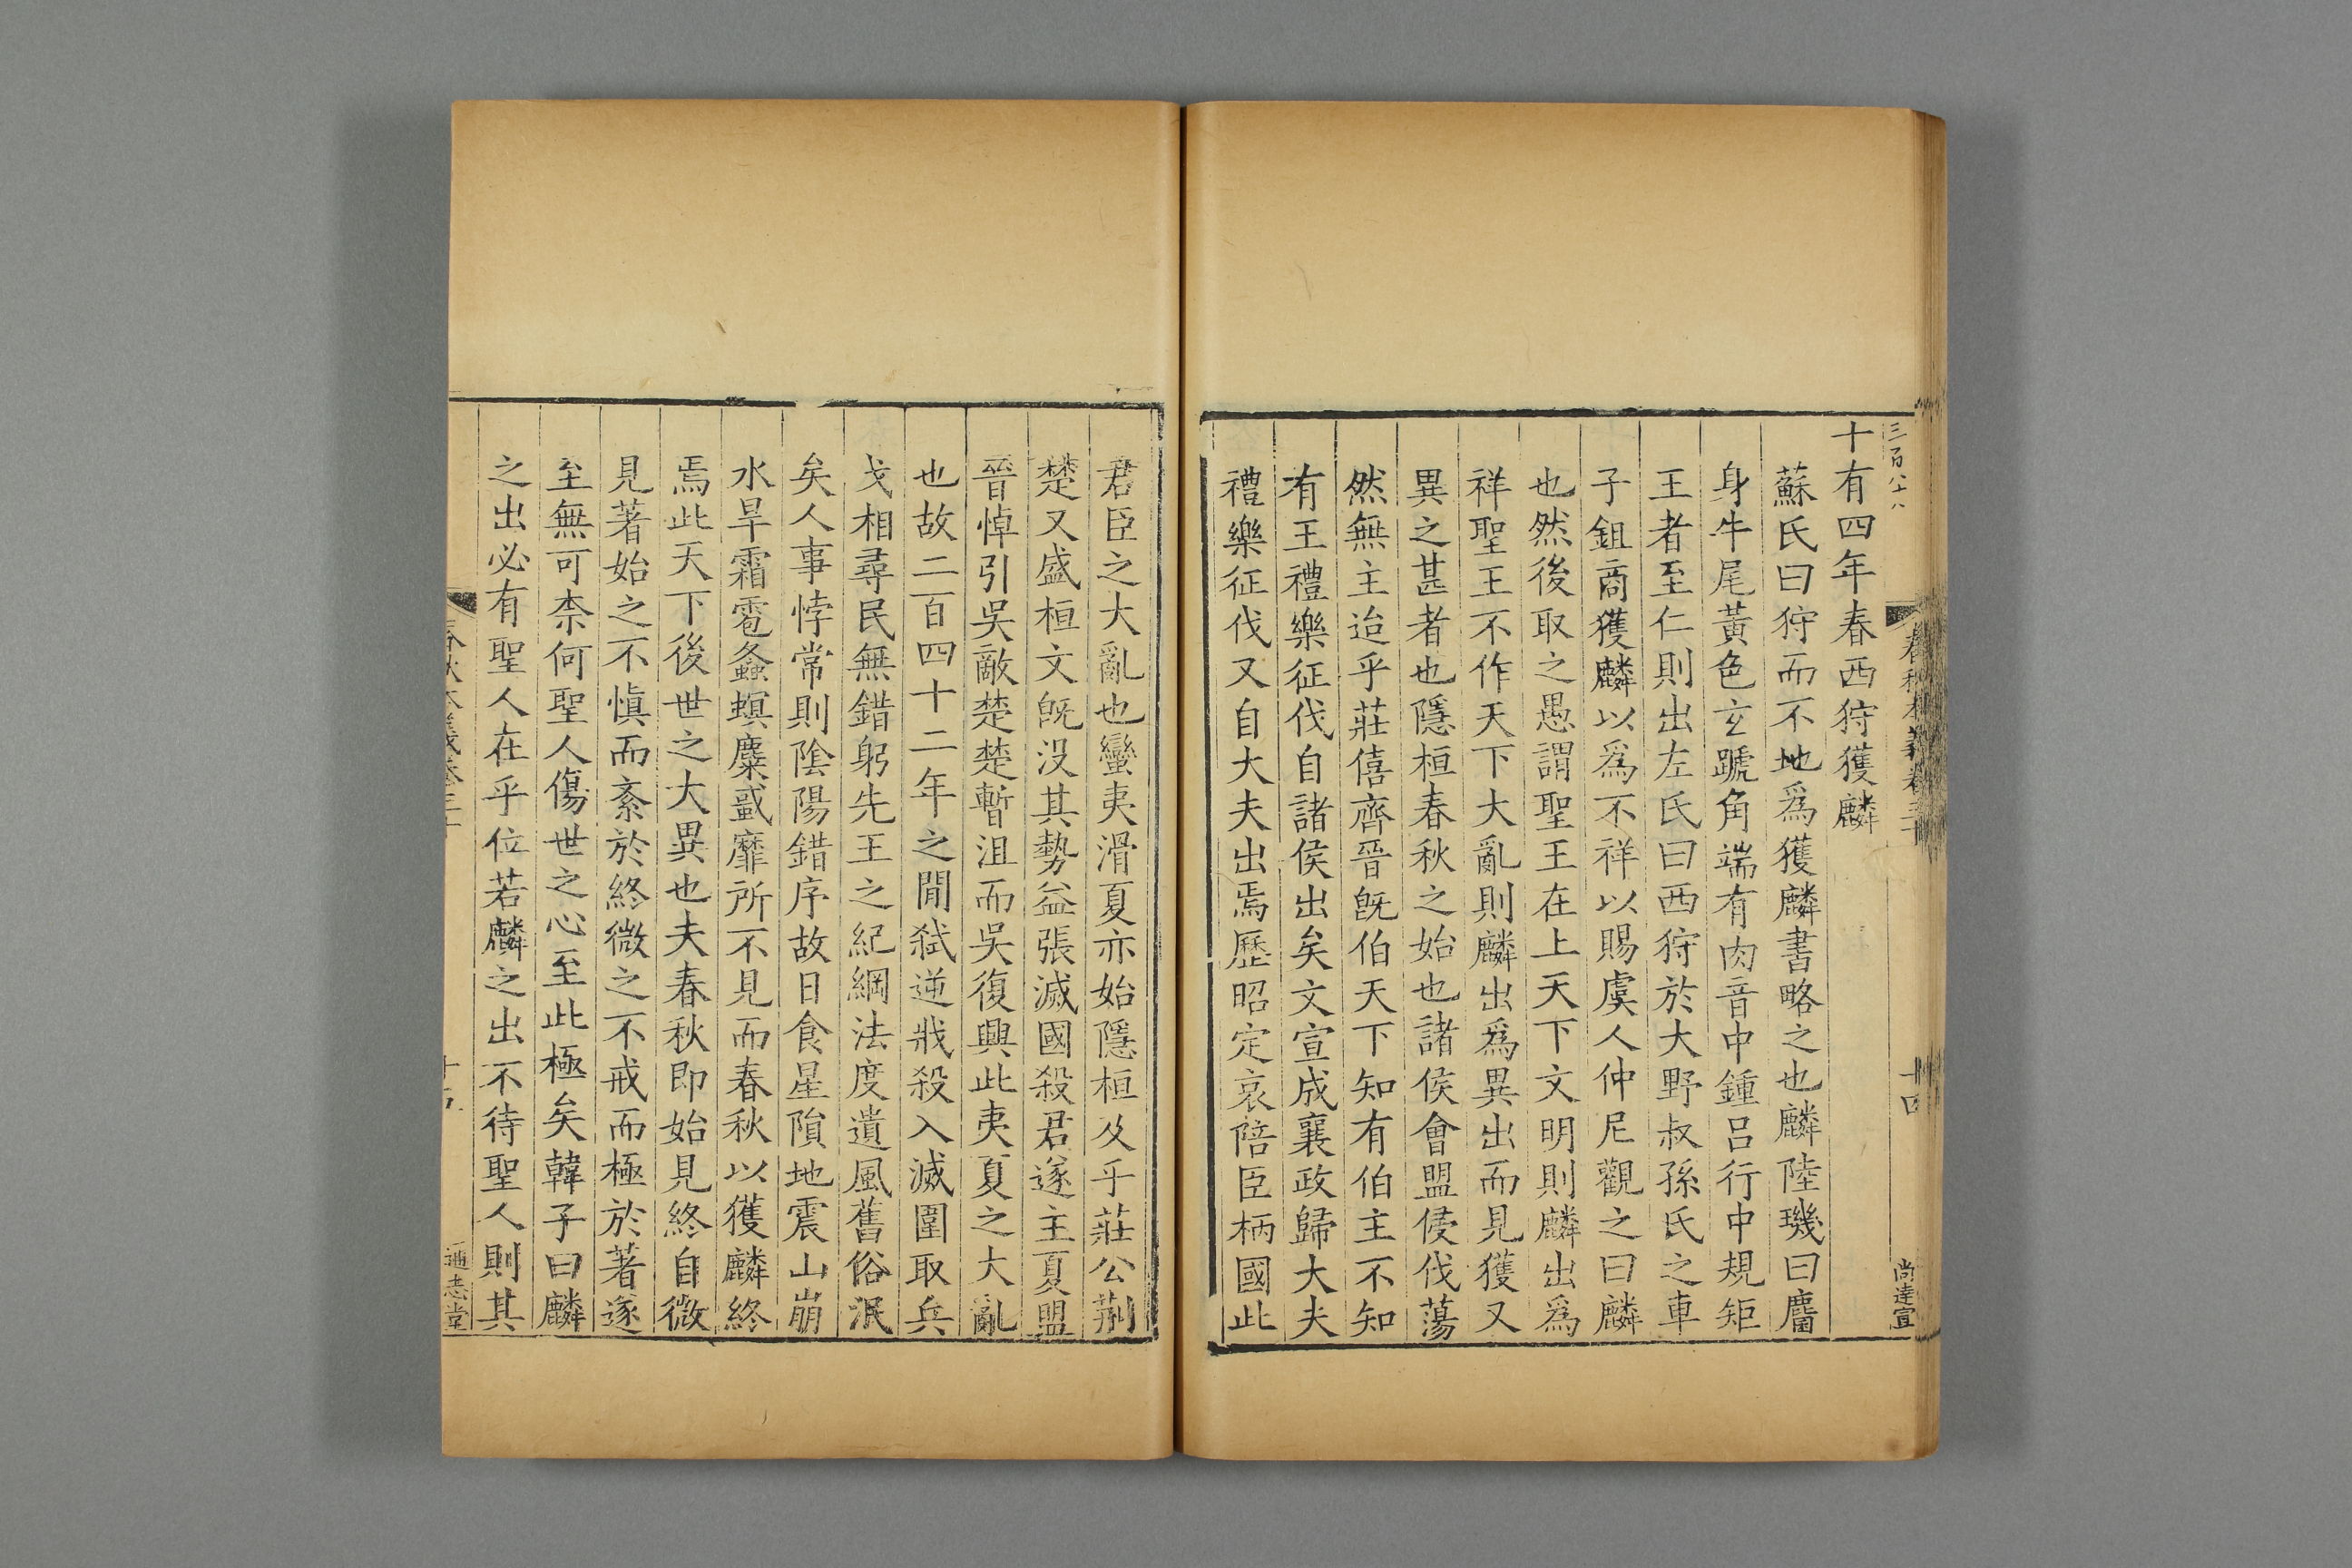 三百八十八
春秋本義卷三十
十四
尚達宣
十有四年春西狩獲麟
蘇氏曰狩而不地爲獲麟書略之也麟陸璣曰麕
身牛尾黃色玄蹏角端有肉音中鍾呂行中規矩
王者至仁則出左氏曰西狩於大野叔孫氏之車
子鉏商獲麟以爲不祥以賜虞人仲尼觀之曰麟
也然後取之愚謂聖王在上天下文明則麟出爲
祥聖王不作天下大亂則麟出爲異出而見獲又
異之甚者也隱桓春秋之始也諸侯會盟侵伐蕩
然無主迨乎莊僖齊晉旣伯天下知有伯主不知
有王禮樂征伐自諸侯出矣文宣成襄政歸大夫
禮樂征伐又自大夫出焉歷昭定哀陪臣柄國此
君臣之大亂也蠻夷滑夏亦始隱桓及乎莊公荆
楚又盛桓文旣沒其勢益張滅國殺君遂主夏盟
晉悼引吳敵楚楚暫沮而吳復興此夷夏之大亂
也故二百四十二年之閒弑逆戕殺入滅圍取兵
戈相尋民無錯躬先王之紀綱法度遺風舊俗泯
矣人事悖常則陰陽錯序故日食星隕地震山崩
水旱霜雹螽螟麋蜮靡所不見而春秋以獲麟終
焉此天下後世之大異也夫春秋即始見終自微
見著始之不愼而紊於終微之不戒而極於著遂
至無可柰何聖人傷世之心至此極矣韓子曰麟
之出必有聖人在乎位若麟之出不待聖人則其
春秋本義卷三十
通志堂